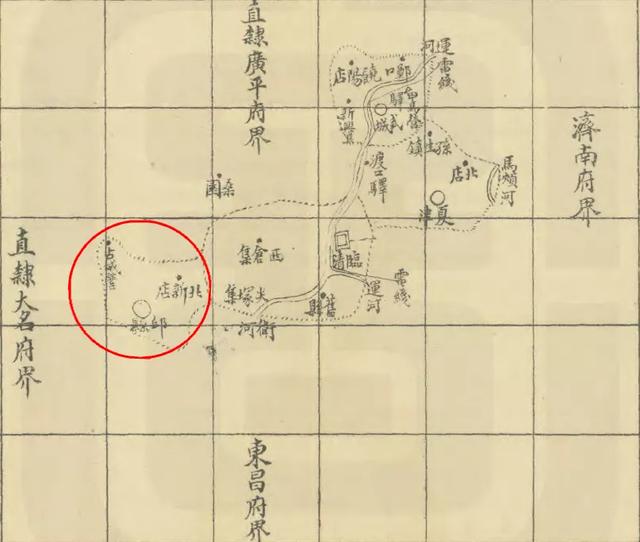 直隸廣平府界
濟南府界
直隸大名府界
東昌府界
運河
電綫
鄭口
饒陽店
武城
新興集
鎮
渡口驛
北店
馬頰河
夏津
桑園
臨清
西倉集
尖冢集
舊縣
運河
電綫
衛河
古城營
北新店
邱縣